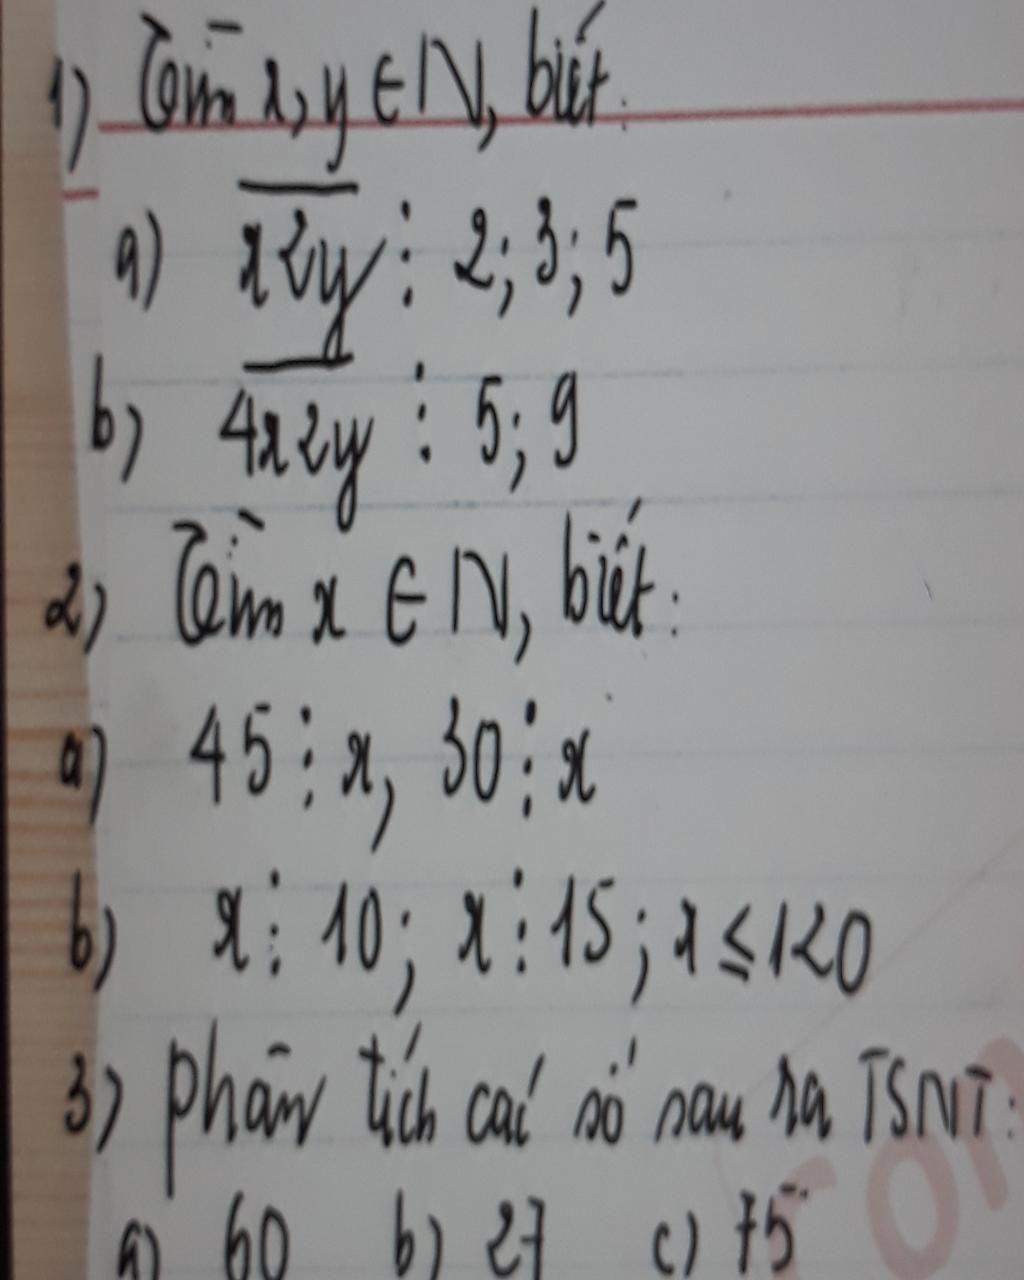 1) Tìm x, y ∈ N, biết:
a) \overline{x2y} ⋮ 2; 3; 5
b) \overline{4x2y} ⋮ 5; 9
2) Tìm x ∈ N, biết:
a) 45 ⋮ x, 30 ⋮ x
b) x ⋮ 10; x ⋮ 15; x ≤ 120
3) Phân tích các số sau ra TSNT:
a) 60 b) 27 c) 75